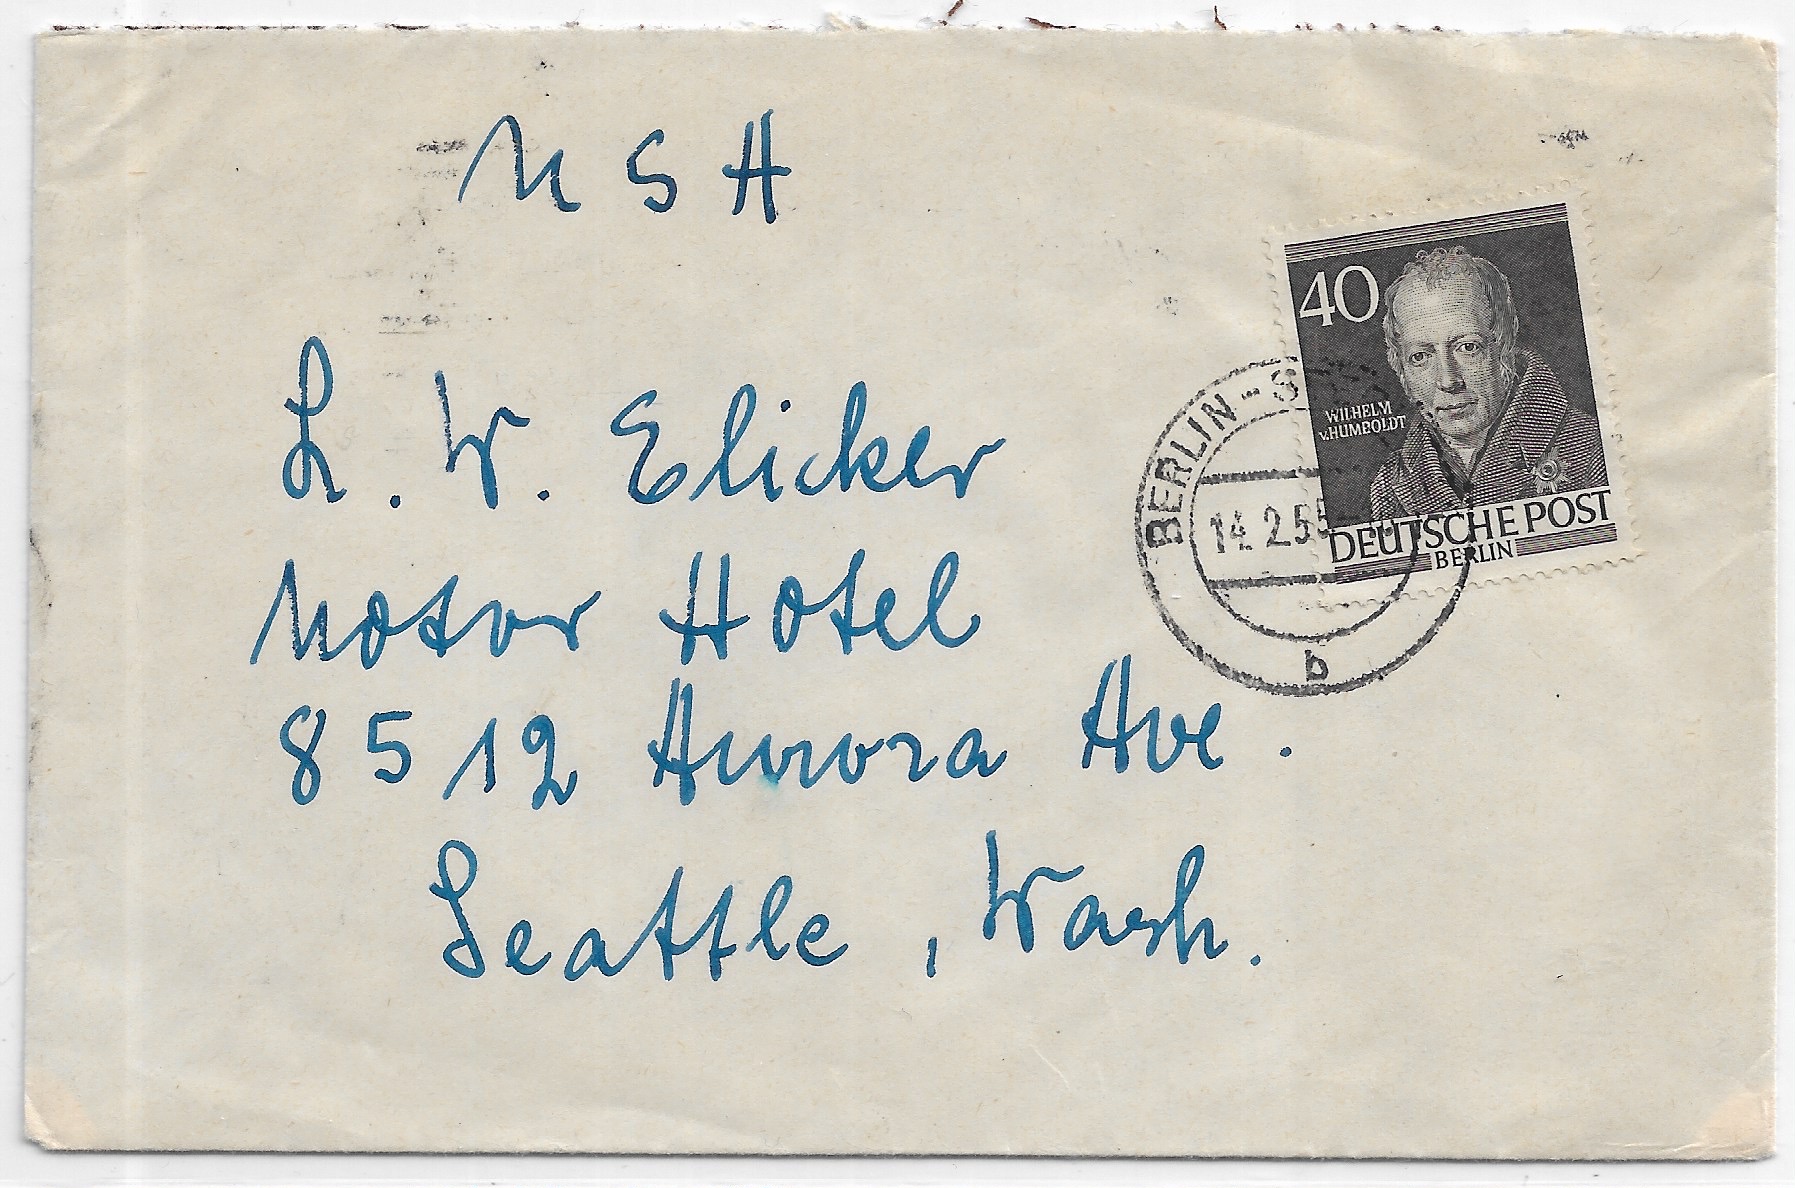 USA
L. W. Elicker
Motor Hotel
8512 Aurora Ave.
Seattle, Wash.
40
WILHELM
v.HUMBOLDT
DEUTSCHE POST
BERLIN
BERLIN-S
14.2.55
b